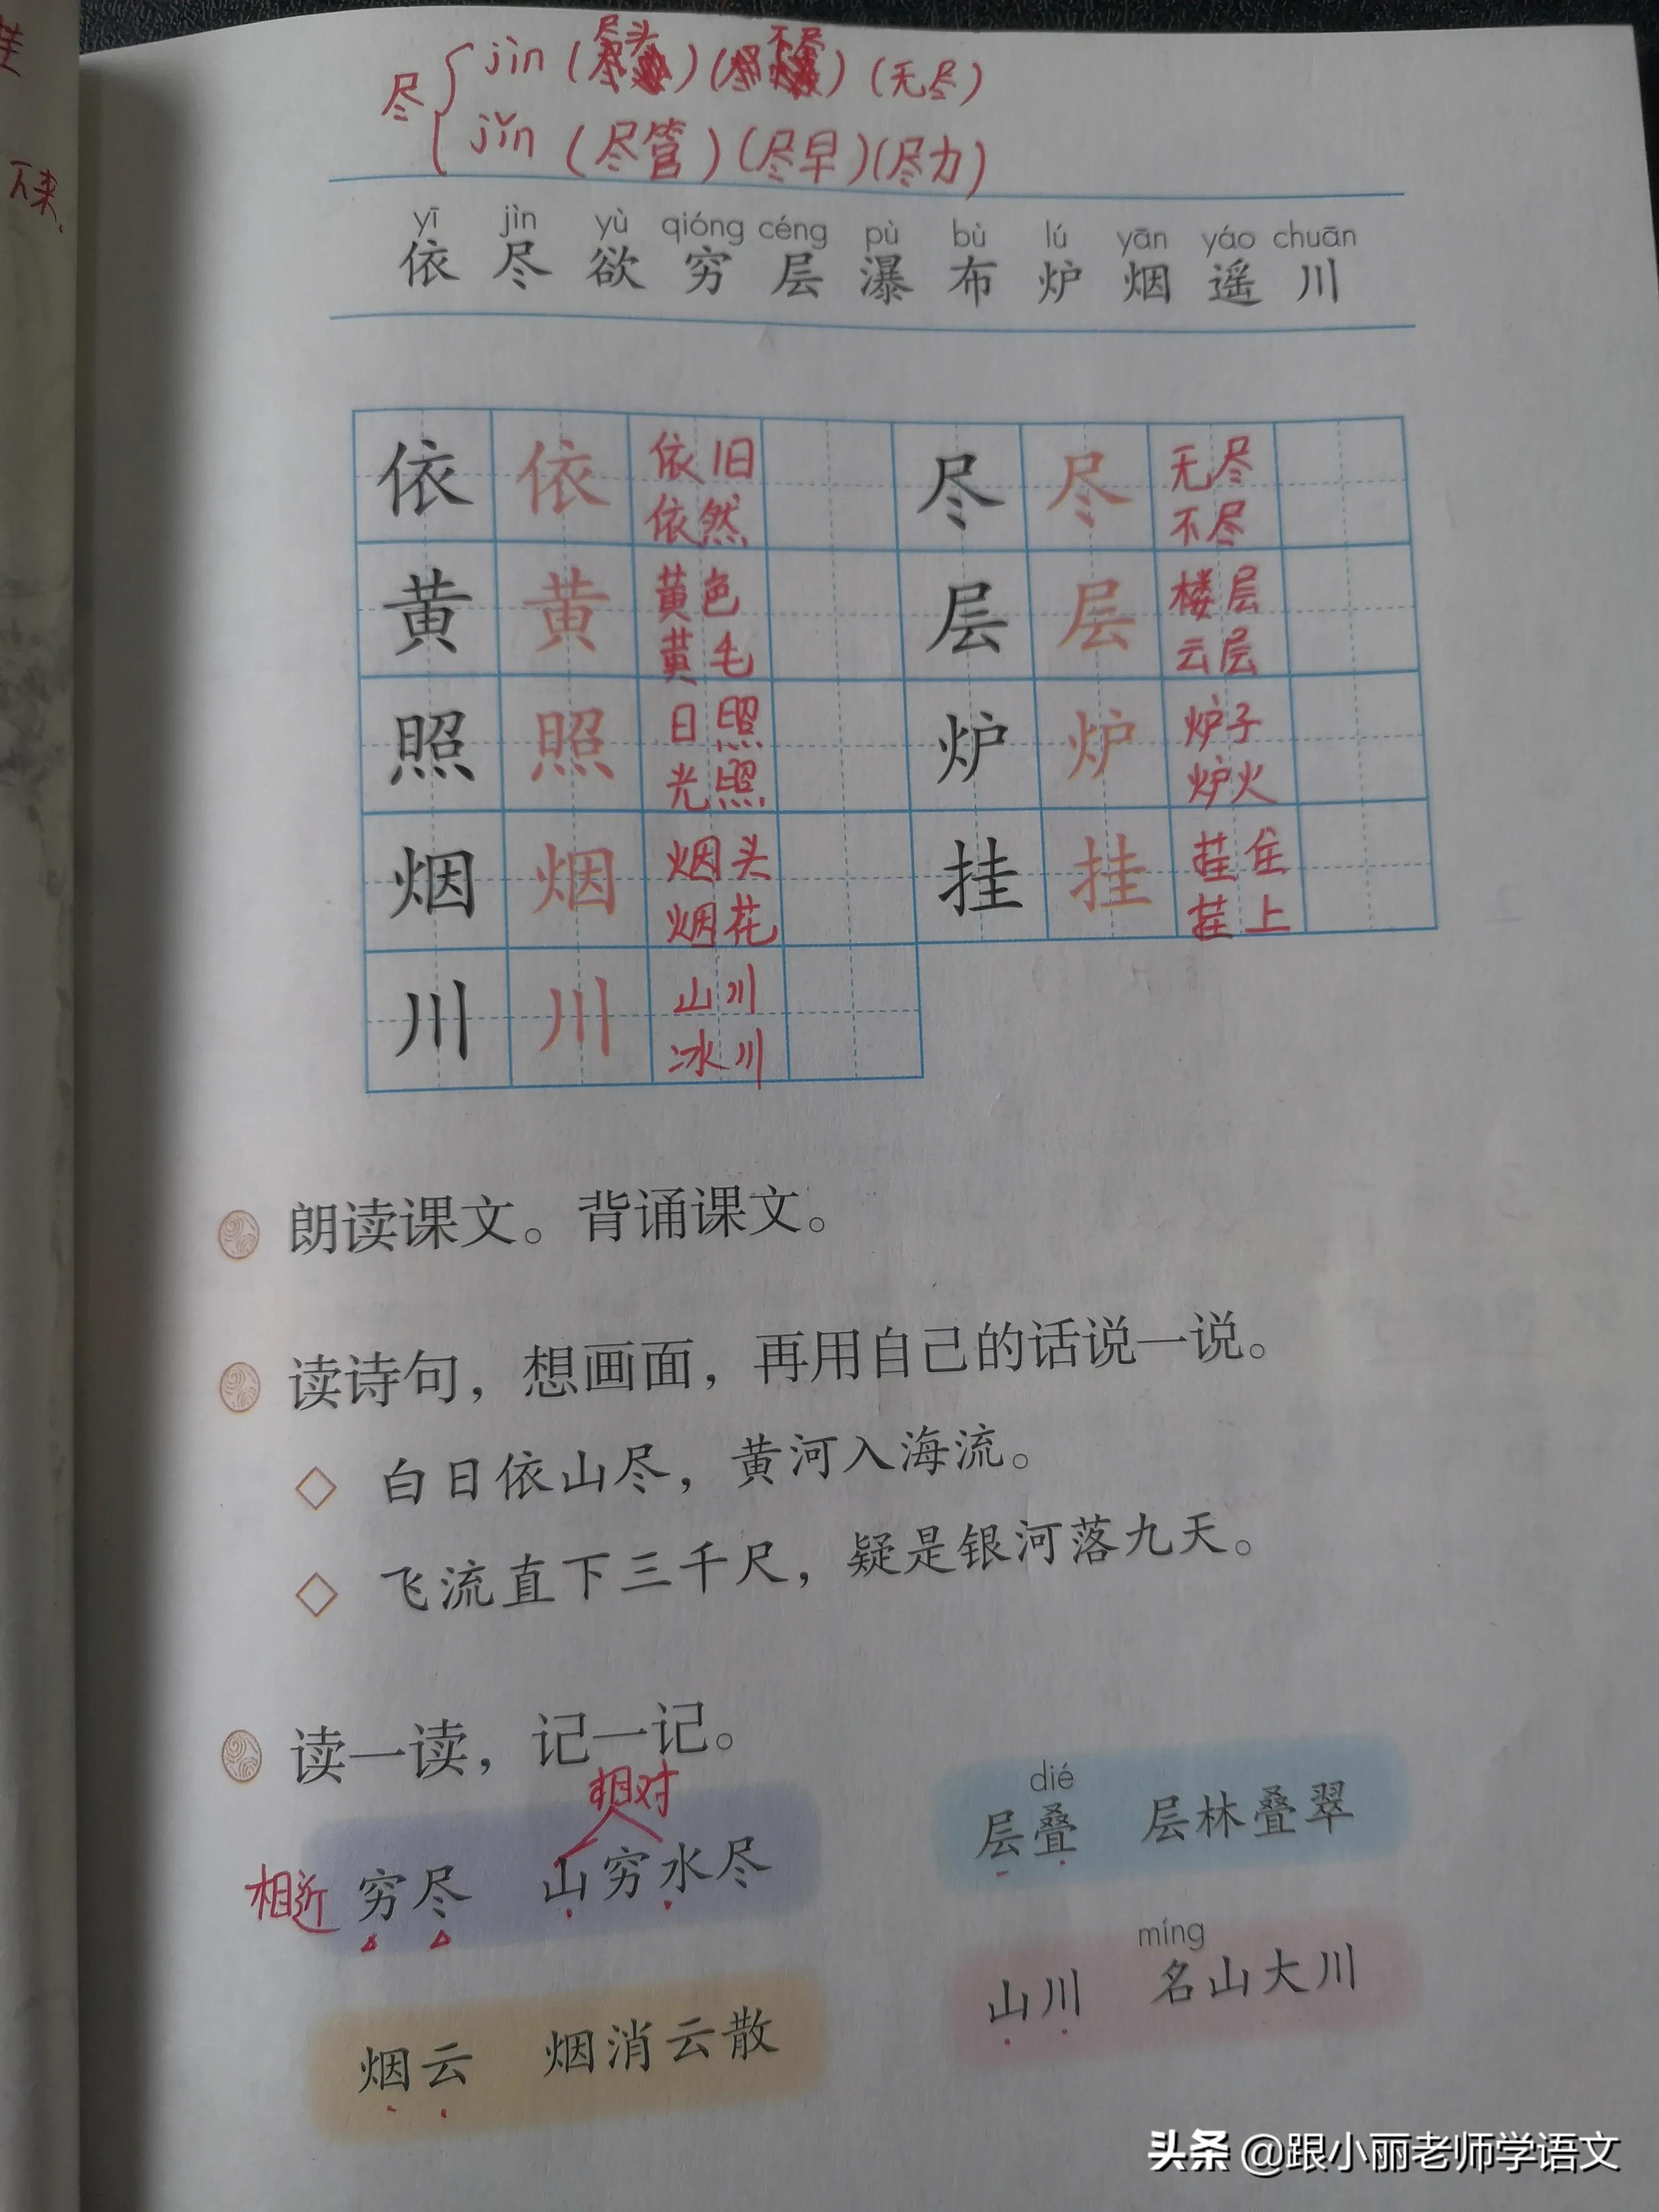 尽 jìn (尽头) (不尽) (无尽)
jǐn (尽管) (尽早) (尽力)
下来
yī jìn yù qióng céng pù bù lú yān yáo chuān
依 尽 欲 穷 层 瀑 布 炉 烟 遥 川
依 依 依旧 依然 尽 尽 无尽 不尽
黄 黄 黄色 黄毛 层 层 楼层 云层
照 照 日照 光照 炉 炉 炉子 炉火
烟 烟 烟头 烟花 挂 挂 挂住 挂上
川 川 山川 冰川
朗读课文。背诵课文。
读诗句，想画面，再用自己的话说一说。
白日依山尽，黄河入海流。
飞流直下三千尺，疑是银河落九天。
读一读，记一记。
相对
相近 穷尽 山穷水尽
dié
层叠 层林叠翠
míng
山川 名山大川
烟云 烟消云散
头条 @跟小丽老师学语文